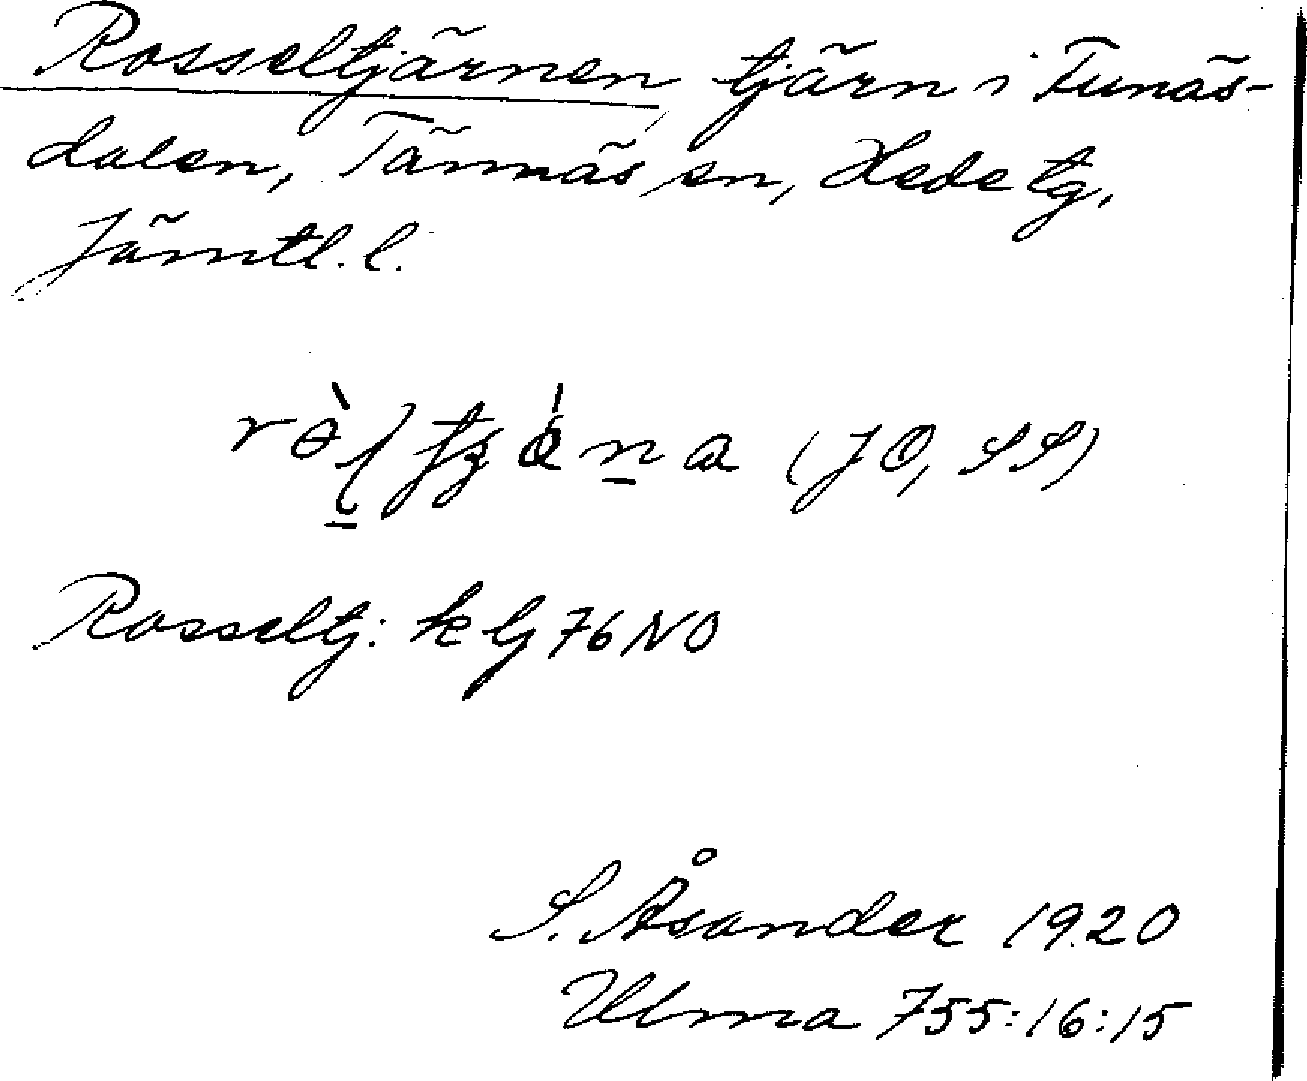 Rosseltjärnen, tjärn i Funäs-
dalen, Tännäs sn, Hede tg,
Jämtl. l.
(JO, SS)
Rosseltj: k bj 76 NO
S. Åsander 1920
Ulma 755:16:15